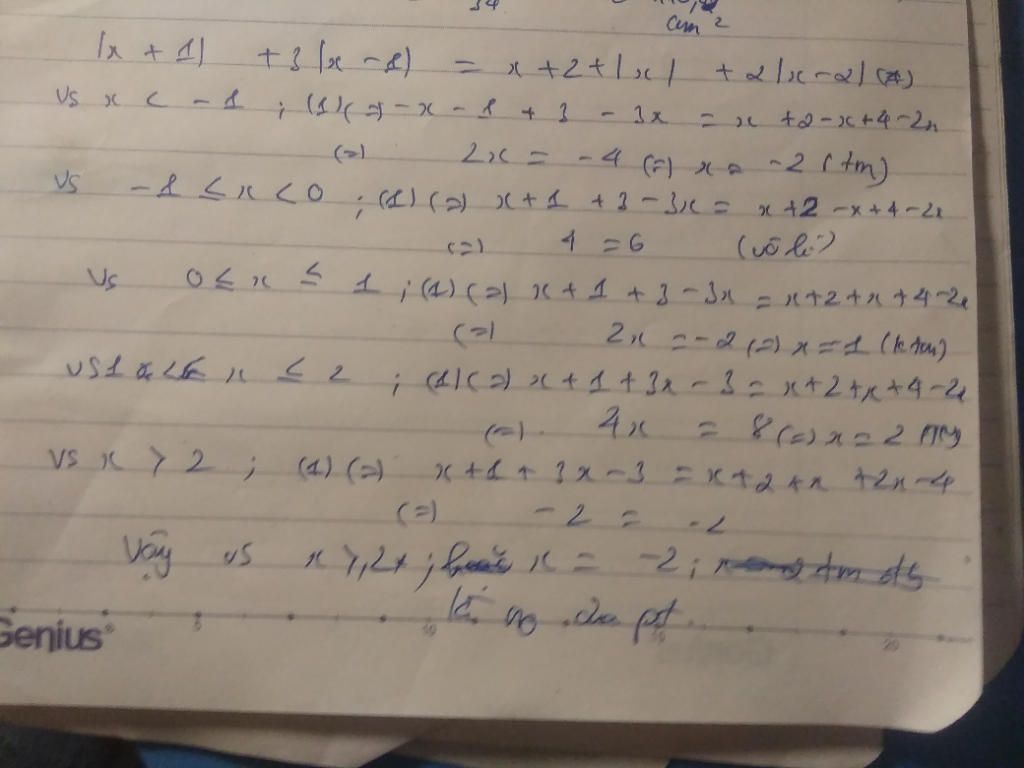 34
cm²
|x + 1| + 3|x - 1| = x + 2 + |x| + 2|x - 2| (1)
vs x < -1 ; (1) (=) -x - 1 + 3 - 3x = x + 2 - x + 4 - 2x
(=) 2x = -4 (=) x = -2 (tm)
vs -1 ≤ x < 0 ; (1) (=) x + 1 + 3 - 3x = x + 2 - x + 4 - 2x
(=) 4 = 6 (vô lí)
Vs 0 ≤ x ≤ 1 ; (1) (=) x + 1 + 3 - 3x = x + 2 + x + 4 - 2x
(=) 2x = -2 (=) x = 1 (k tm)
vs 1 < x ≤ 2 ; (1) (=) x + 1 + 3x - 3 = x + 2 + x + 4 - 2x
(=) 4x = 8 (=) x = 2 (TM)
vs x > 2 ; (1) (=) x + 1 + 3x - 3 = x + 2 + x + 2x - 4
(=) -2 = -2
Vậy vs x ≥ 2 ; x = -2 ;
là no của pt
Genius 5 10 15 20